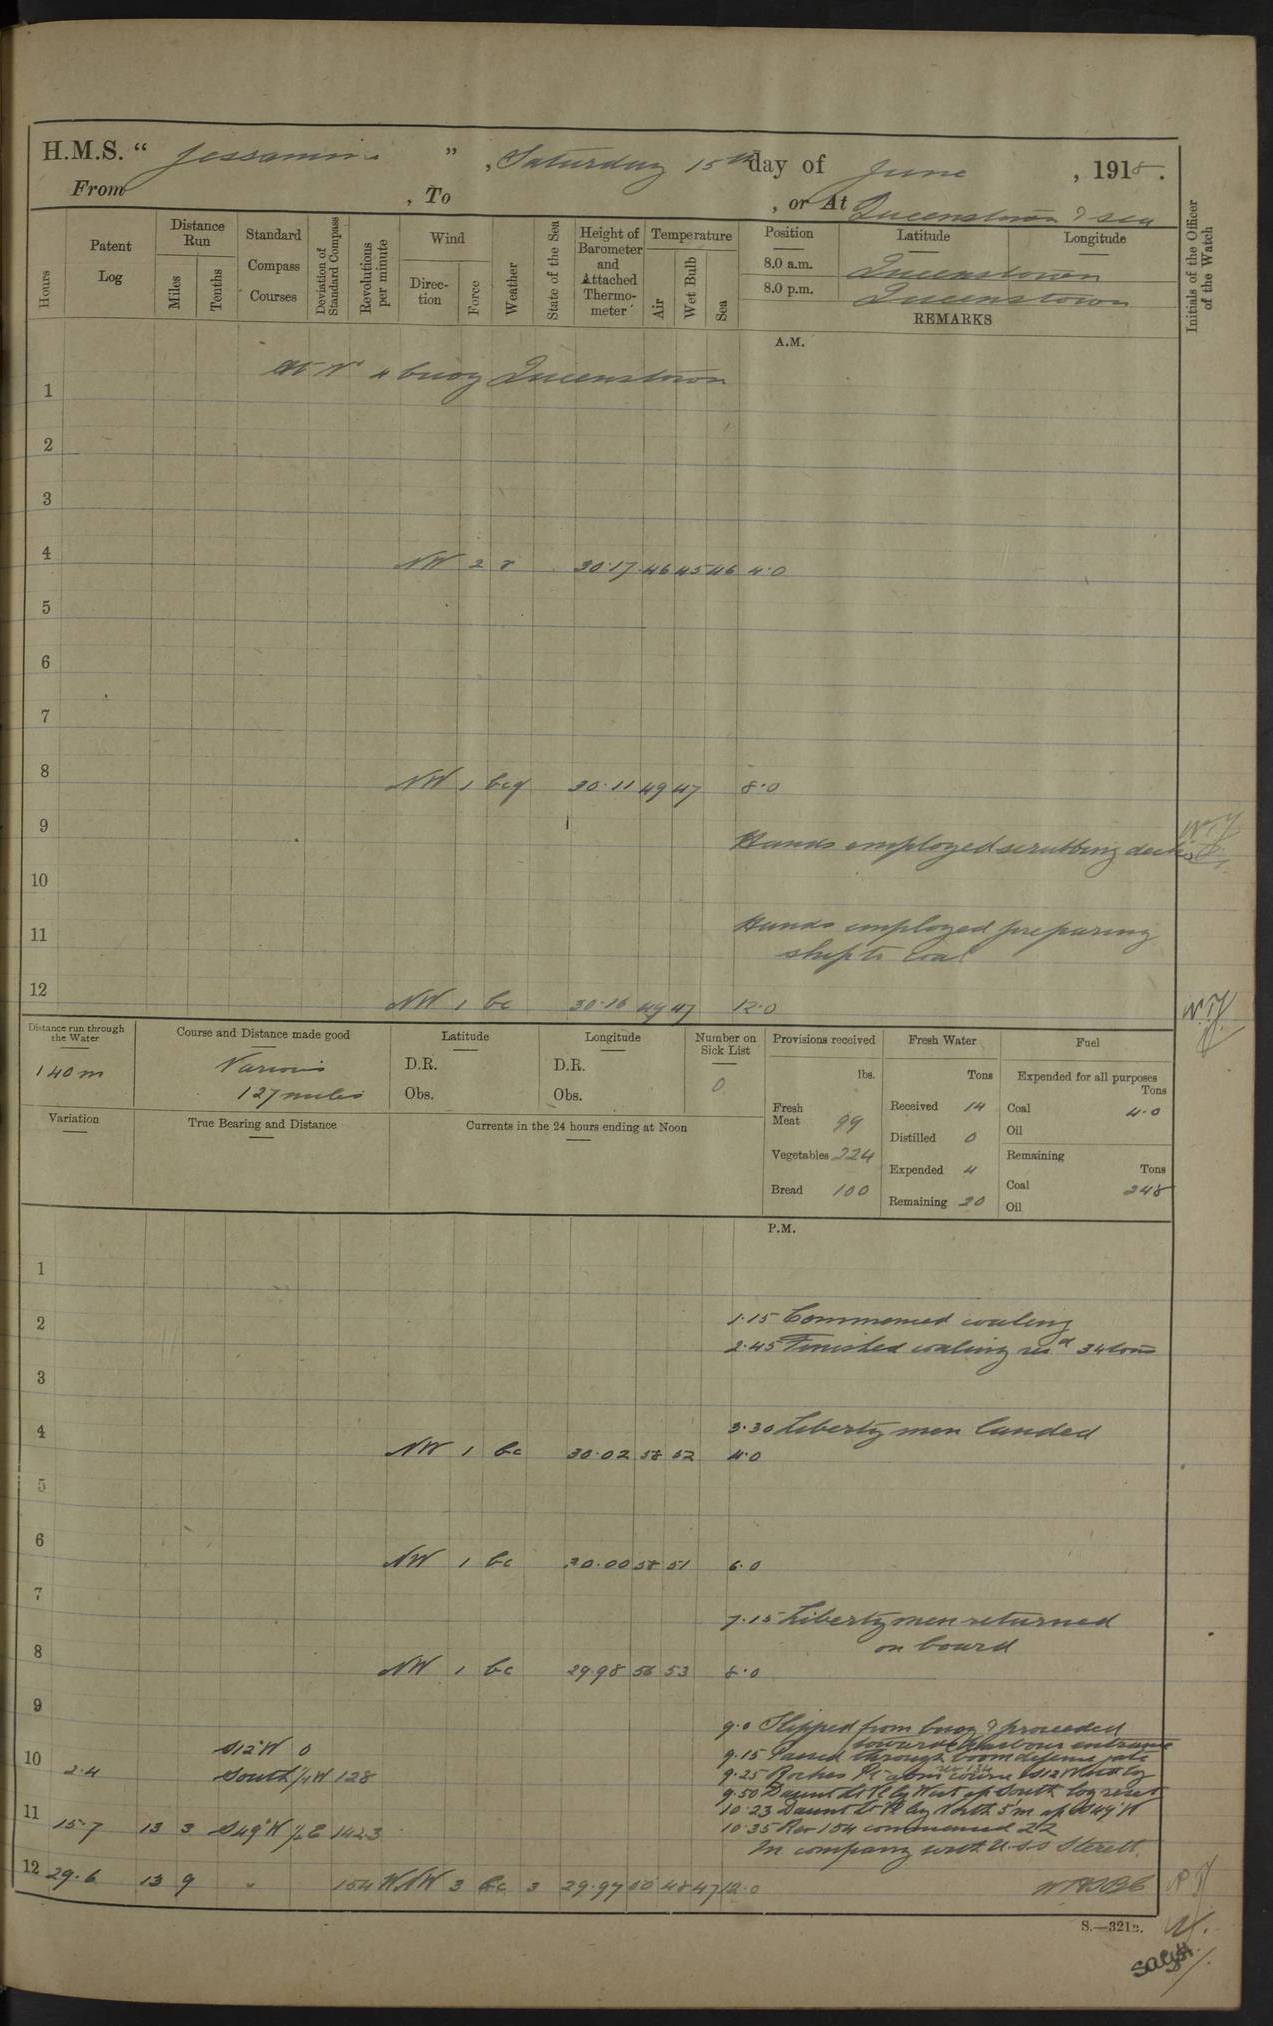 H.M.S. " Jessamine " , Saturday 15th day of June , 1918.
From , To , or At Queenstown & sea
Hours
Patent Log
Distance Run
Miles
Tenths
Standard Compass Courses
Deviation of Standard Compass
Revolutions per minute
Wind
Direction
Force
Weather
State of the Sea
Height of Barometer and Attached Thermometer
Temperature
Air
Wet Bulb
Sea
Position
Latitude
Longitude
8.0 a.m. Queenstown
8.0 p.m. Queenstown
REMARKS
Initials of the Officer of the Watch
A.M.
At No 4 buoy Queenstown
1
2
3
4 NW 2 r 30.17 46 45 46 4.0
5
6
7
8 NW 1 bcq 30.11 49 47 8.0
9
Hands employed scrubbing decks
10
11 Hands employed preparing
ship to coal
12 NW 1 bc 30.16 49 47 12.0
Distance run through the Water
140 m
Course and Distance made good
Various
127 miles
Latitude
D.R.
Obs.
Longitude
D.R.
Obs.
Number on Sick List
0
Provisions received
lbs.
Fresh Meat 99
Vegetables 224
Bread 100
Fresh Water
Tons
Received 14
Distilled 0
Expended 4
Remaining 20
Fuel
Expended for all purposes
Tons
Coal 4.0
Oil
Remaining
Tons
Coal 248
Oil
Variation
True Bearing and Distance
Currents in the 24 hours ending at Noon
P.M.
1
2 1.15 Commenced coaling
2.45 Finished coaling recd 34 tons
3
4 3.30 Liberty men landed
NW 1 bc 30.02 58 52 4.0
5
6
NW 1 bc 30.00 58 51 6.0
7
7.15 Liberty men returned
on board
8 NW 1 bc 29.98 56 53 8.0
9
9.0 Slipped from buoy & proceeded
towards harbour entrance
S12°W 0 9.15 Passed through boom defence gate
10 2.4 South 1/4 W 128 9.25 Roches Pt abm course S12W
9.50 Daunt Lt Vl by West up South log reset
10.23 Daunt Lt Vl by North 5'm up S49°W
11 15.7 13 3 S49°W 142.3 10.35 Rev 154 commenced ZZ
In company with U.S.S Sterett.
12 29.6 13 9 " 154 WNW 3 bc 3 29.97 50 48 47 12.0
S.—321B.